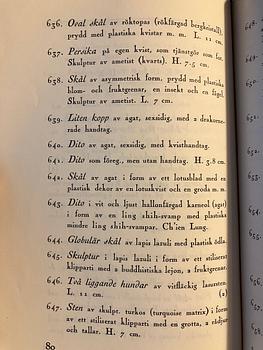 636. Oval skål av röktopas (rökfärgad bergkristall),
prydd med plastiska kvistar m. m. L. 12 cm.
637. Persika på egen kvist, som tjänstgör som fot.
Skulptur av ametist (kvarts). H. 7.5 cm.
638. Skål av asymmetrisk form, prydd med plastiska
blom- och fruktgrenar, en insekt och en fågel.
Skulptur av ametist. L. 7 cm.
639. Liten kopp av agat, sexsidig, med 2 drakorne-
rade handtag.
640. Dito av agat, sexsidig, med kvisthandtag.
641. Dito som föreg., men utan handtag. H. 3.8 cm.
642. Skål av agat i form av ett lotusblad med en
plastisk dekor av en lotuskvist och en groda m. m.
643. Dito i vit och ljust hallonfärgad karneol (agat)
i form av en ling shih-svamp med plastiska
mindre ling shih-svampar. Ch'ien Lung.
644. Globulär skål av lapis lazuli med plastisk ödla.
645. Skulptur i lapis lazuli i form av ett stiliserat
klipparti med en buddhistiska lejon, a fruktgrenar.
646. Två liggande hundar av vitfläckig lasursten.
L. 12 cm. (2)
647. Sten av skulpt. turkos (turquoise matrix) i form
av ett stiliserat klipparti med en grotta, 2 rådjur
och tallar. H. 7 cm.
80